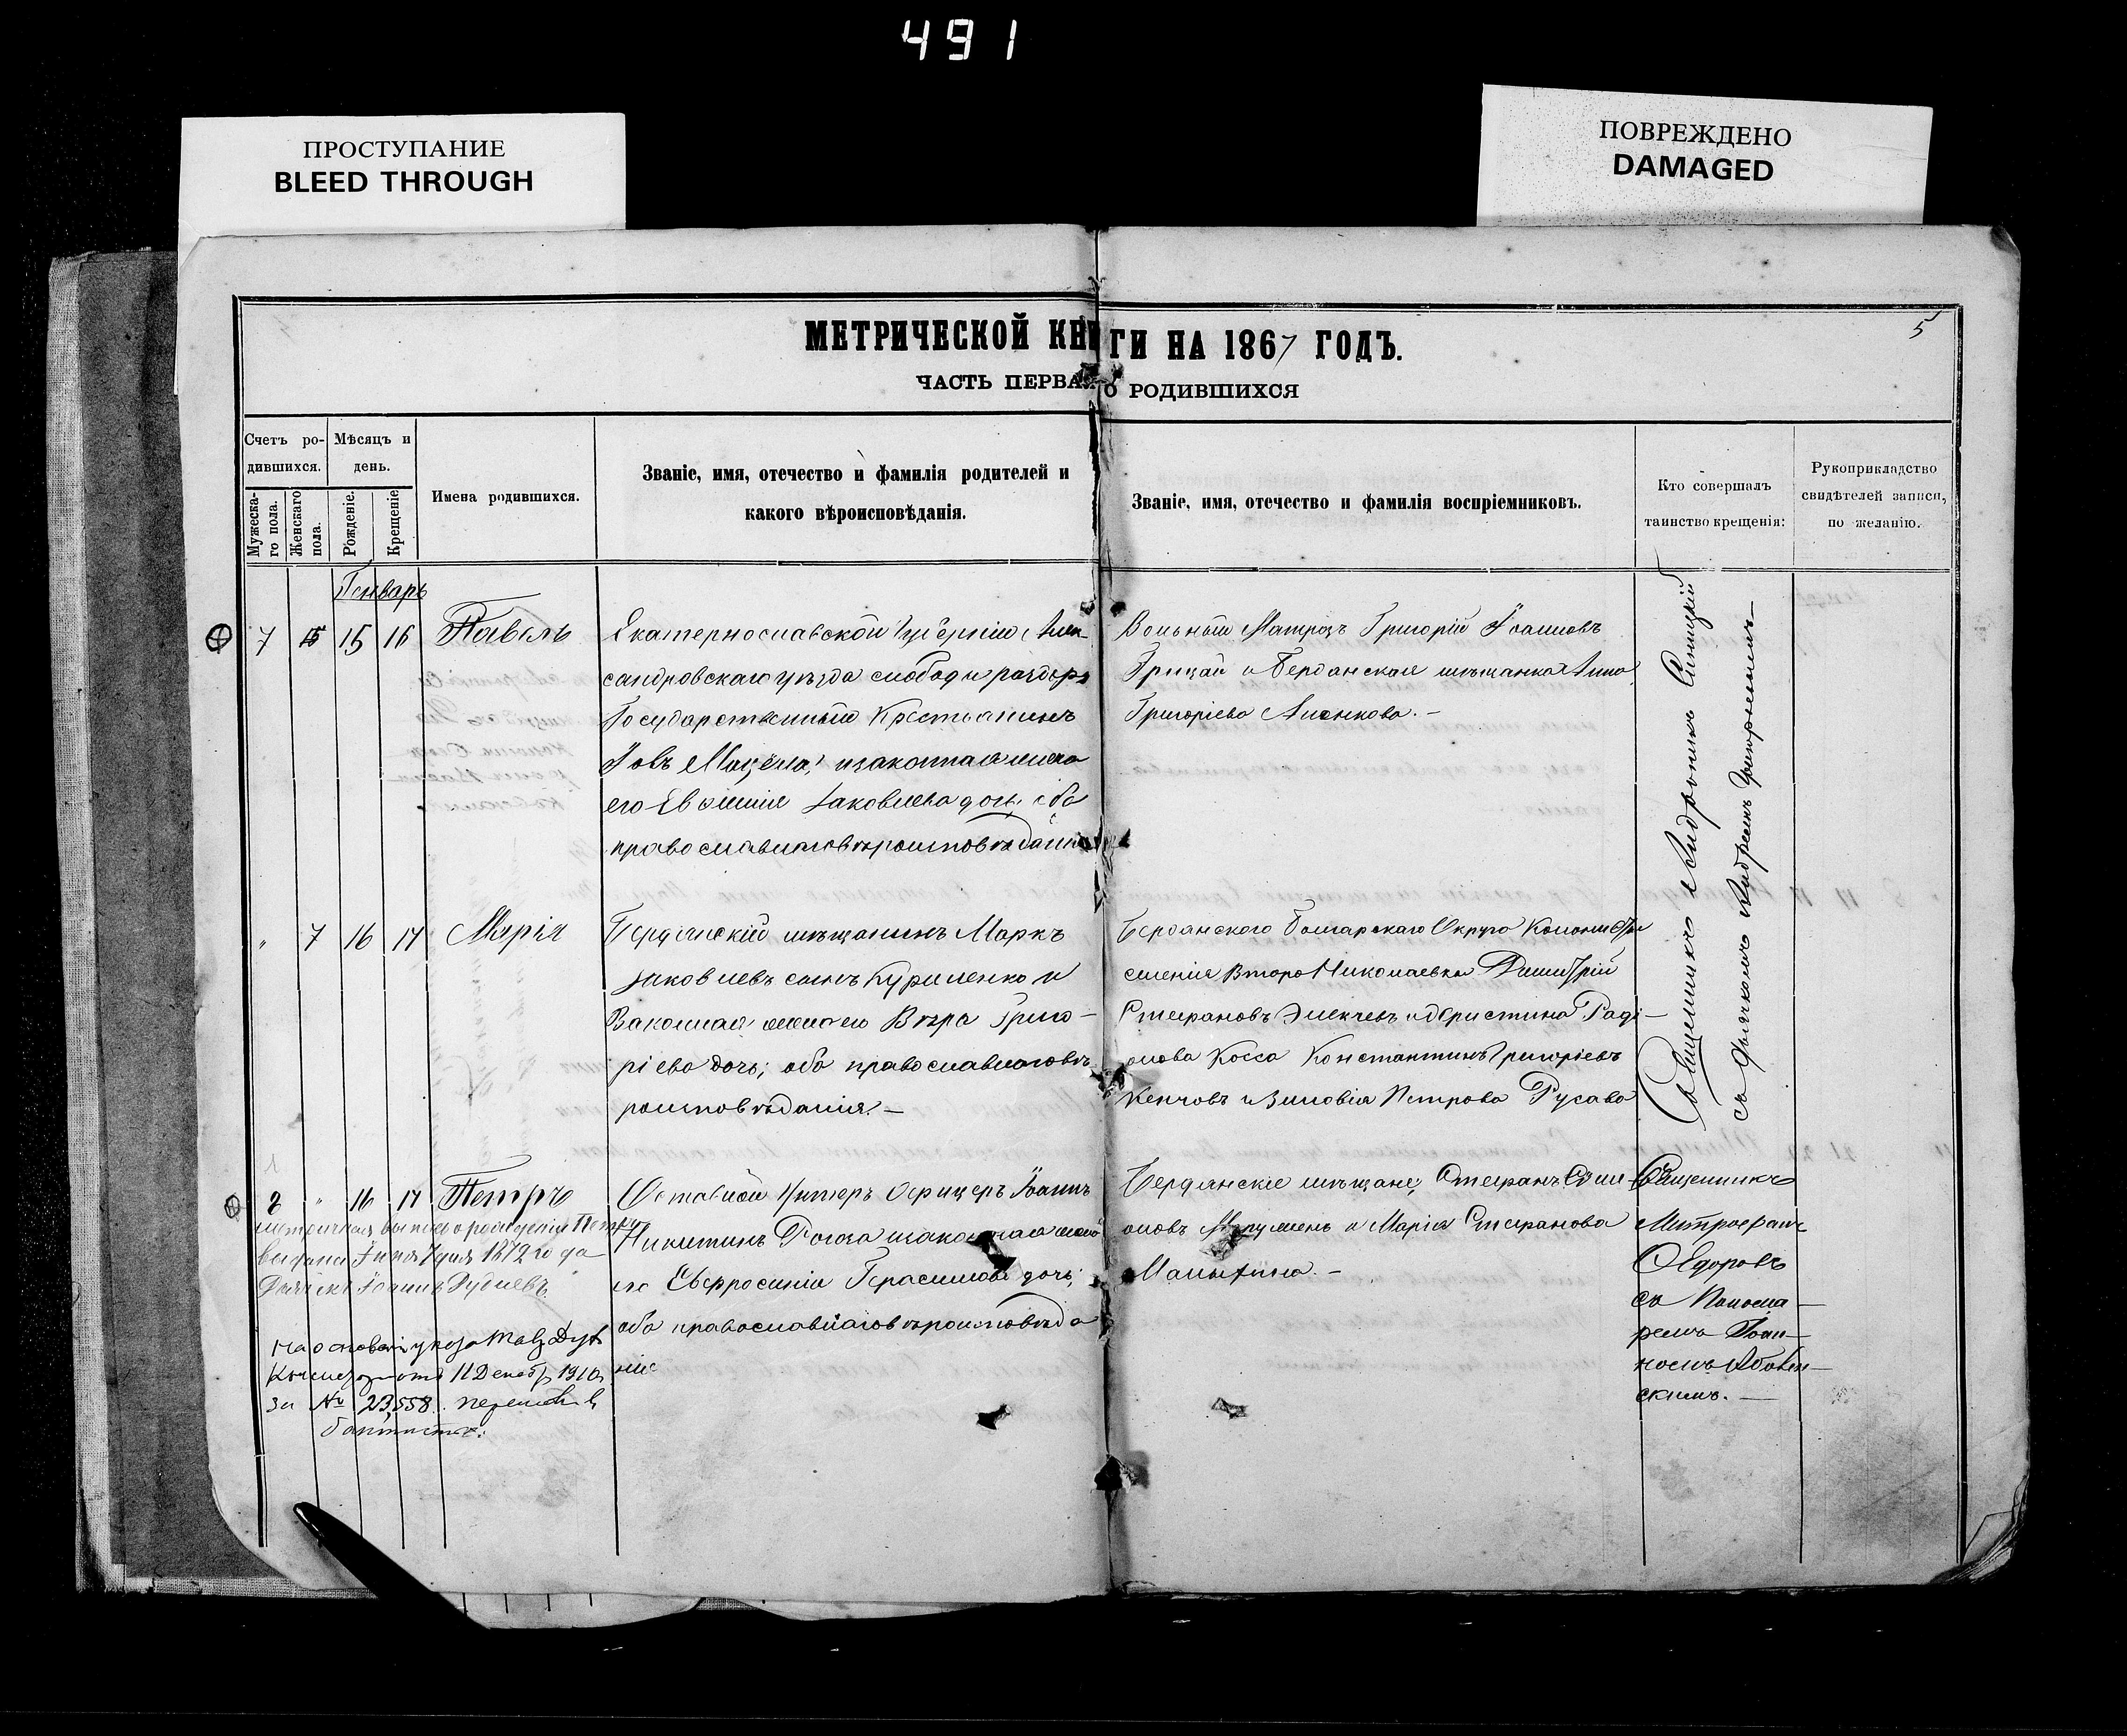 491
ПРОСТУПАНИЕ
BLEED THROUGH
ПОВРЕЖДЕНО
DAMAGED
5
МЕТРИЧЕСКОЙ КНИГИ НА 1867 ГОДЪ.
ЧАСТЬ ПЕРВАЯ О РОДИВШИХСЯ
Счетъ ро-
дившихся.
Мужеска-
го пола.
Женскаго
пола.
Мѣсяцъ и
день.
Рожденіе.
Крещеніе
Имена родившихся.
Званіе, имя, отечество и фамилія родителей и
какого вѣроисповѣданія.
Званіе, имя, отечество и фамилія воспріемниковъ.
Кто совершалъ
таинство крещенія:
Рукоприкладство
свидѣтелей записи,
по желанію.
Генварь
7 15 16 Павелъ
Екатеринославской Губерніи Алек-
сандровскаго уѣзда слободы
Государственный Крестьянинъ
Іовъ изаконная жена
его Іаковлева дочь; оба
православнаго вѣроисповѣданія
Вольный Матрозъ Григорій Іоанновъ
Грицай и Бердянская мѣщанка Анна
Григоріева
Священникъ Андроникъ Синицкій
съ Дьячкомъ Андреемъ
" 7 16 17 Марія
Бердянскій мѣщанинъ Маркъ
Іаковлевъ сынъ Куриленко и
Законная жена его Вѣра Григо-
ріева дочь; оба православнаго вѣ-
роисповѣданія. —
Бердянского Болгарскаго Округа Колонисты
селенія Второ Николаевки Димитрій
Стефановъ и Христина Раді-
онова Косса Константинъ Григоріевъ
и Зиновія Петрова Русава
8 " 16 17 Петръ
Оставной Унтеръ Офицеръ Іоаннъ
Никитинъ Рогоза изаконная жена
его Евфросинія Герасимова дочь;
оба православнаго вѣроисповѣда
ніе
Бердянскіе мѣщане, Стефанъ
и Марія Стефанова
Священникъ
Митрофанъ
Ѳедоровъ
съ Понома-
ремъ Іоан-
номъ
скимъ. —
метрическая выпись о рожденіи Петра
выдана Іюня 7 дня 1872 года
Іоаннъ
На основаніи указа Тавр Дух
Консисторіи отъ 11 Декабр 1910
за № 23,558